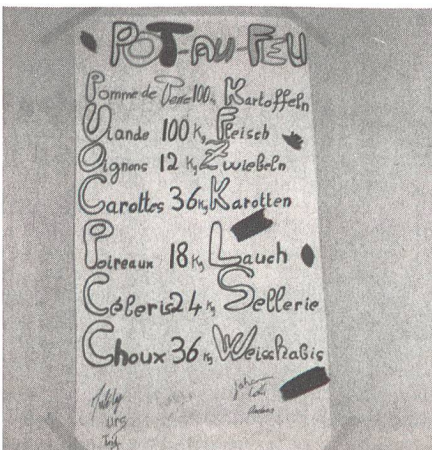 POT-AU-FEU
Pomme de Terre 100 Kg Kartoffeln
Viande 100 Kg Fleisch
Oignons 12 Kg Zwiebeln
Carottes 36 Kg Karotten
Poireaux 18 Kg Lauch
Céleris 24 Kg Sellerie
Choux 36 Kg Weisskabis
urs